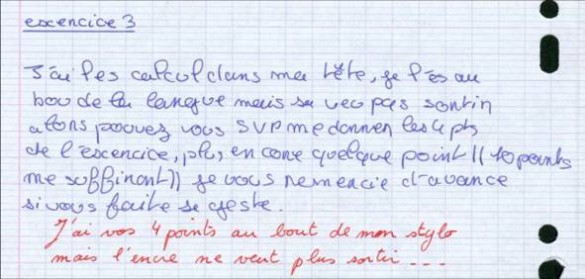 excencice 3
J'ai les calcul dans ma tête, je l'es au
bou de la langue mais sa veo pas sontin
alons pouvez vous SVP me donnen les 4 pts
de l'excencice, plus en cone quelque point (( 10 points
me suffinont )) je vous nemencie d'avance
si vous faite se geste.
J'ai vos 4 points au bout de mon stylo
mais l'encre ne veut plus sortir ...